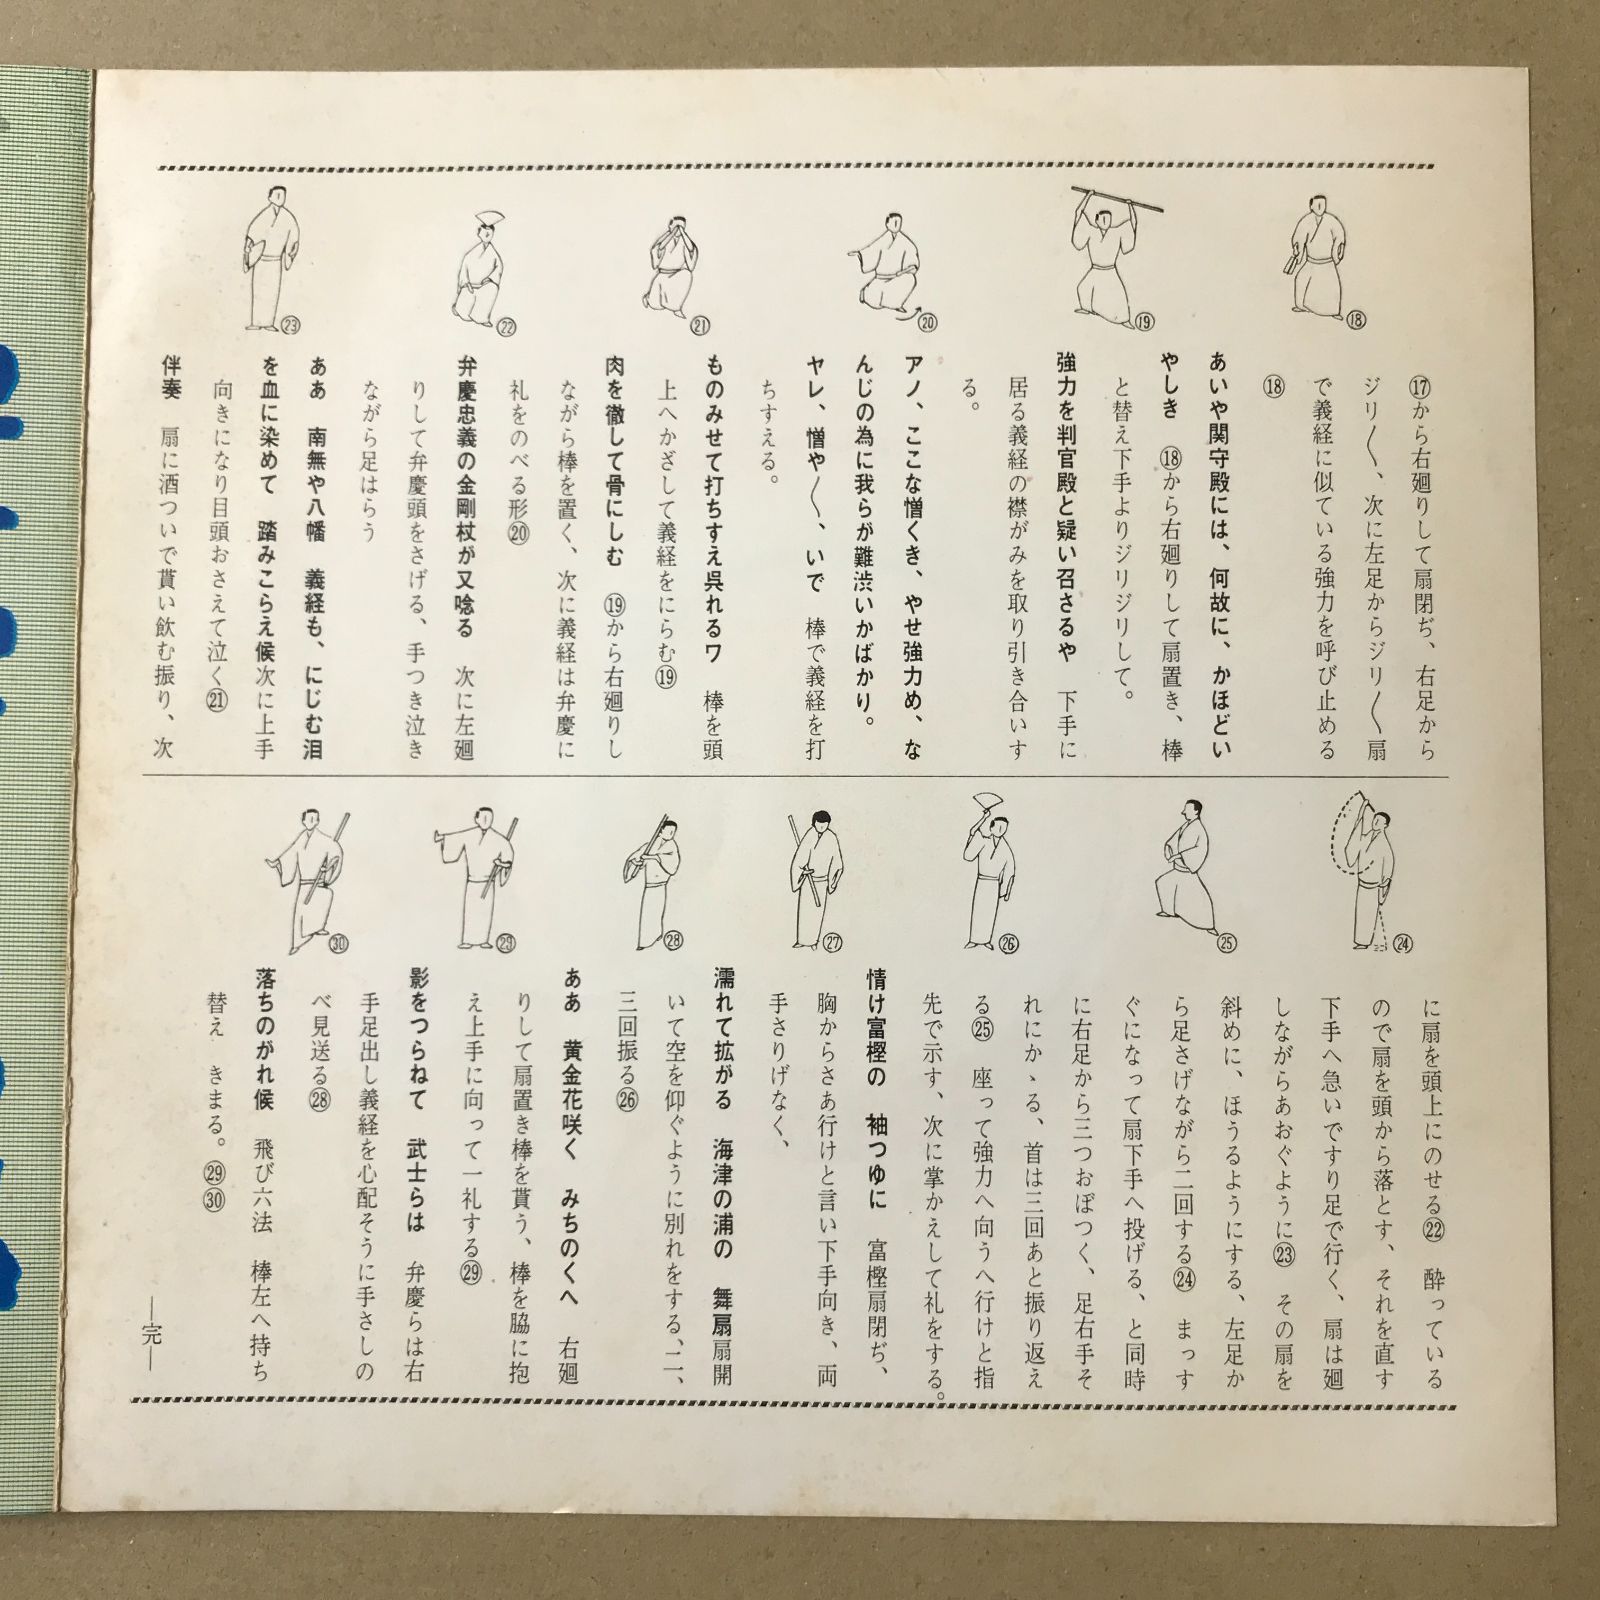 ⑰から右廻りして扇閉ぢ、右足から
ジリ〱、次に左足からジリ〱扇
で義経に似ている強力を呼び止める
⑱
あいや関守殿には、何故に、かほどい
やしき　⑱から右廻りして扇置き、棒
と替え下手よりジリジリして。
強力を判官殿と疑い召さるや　下手に
居る義経の襟がみを取り引き合いす
る。
アノ、ここな憎くき、やせ強力め、な
んじの為に我らが難渋いかばかり。
ヤレ、憎や〱、いで　棒で義経を打
ちすえる。
ものみせて打ちすえ呉れるワ　棒を頭
上へかざして義経をにらむ⑲
肉を徹して骨にしむ　⑲から右廻りし
ながら棒を置く、次に義経は弁慶に
礼をのべる形⑳
弁慶忠義の金剛杖が又唸る　次に左廻
りして弁慶頭をさげる、手つき泣き
ながら足はらう
ああ　南無や八幡　義経も、にじむ泪
を血に染めて　踏みこらえ候次に上手
向きになり目頭おさえて泣く㉑
伴奏　扇に酒ついで貰い飲む振り、次
⑱
⑲
⑳
㉑
㉒
㉓
に扇を頭上にのせる㉒　酔っている
ので扇を頭から落とす、それを直す
下手へ急いですり足で行く、扇は廻
しながらあおぐように㉓　その扇を
斜めに、ほうるようにする、左足か
ら足さげながら二回する㉔　まっす
ぐになって扇下手へ投げる、と同時
に右足から三つおぼつく、足右手そ
れにかゝる、首は三回あと振り返え
る㉕　座って強力へ向うへ行けと指
先で示す、次に掌かえして礼をする。
情け富樫の　袖つゆに　富樫扇閉ぢ、
胸からさあ行けと言い下手向き、両
手さりげなく、
濡れて拡がる　海津の浦の　舞扇扇開
いて空を仰ぐように別れをする、二、
三回振る㉖
ああ　黄金花咲く　みちのくへ　右廻
りして扇置き棒を貰う、棒を脇に抱
え上手に向って一礼する㉙
影をつらねて　武士らは　弁慶らは右
手足出し義経を心配そうに手さしの
べ見送る㉘
落ちのがれ候　飛び六法　棒左へ持ち
替え　きまる。㉙㉚
―完―
㉔
㉕
㉖
㉗
㉘
㉙
㉚